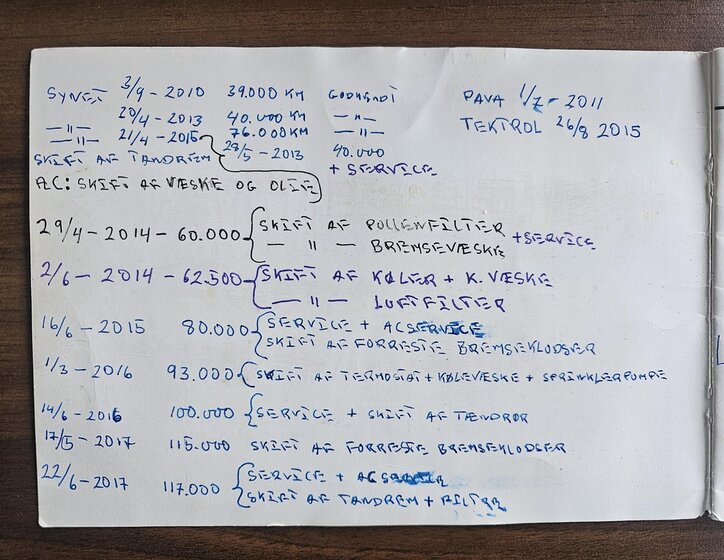 SYNET 3/9 - 2010 39.000 KM GODKENDT
20/4 - 2013 40.000 KM — " —
— " — 21/4 - 2015 76.000 KM — " —
SKIFT AF TANDREM 28/5 - 2013 40.000
+ SERVICE
AC: SKIFT AF VÆSKE OG OLIE
PAVA 1/7 - 2011
TEKTROL 26/8 2015
29/4 - 2014 - 60.000 SKIFT AF POLLENFILTER
— " — BREMSEVÆSKE + SERVICE
2/6 - 2014 - 62.500 SKIFT AF KØLER + K. VÆSKE
— " — LUFTFILTER
16/6 - 2015 80.000 SERVICE + ACSERVICE
SKIFT AF FORRESTE BREMSEKLODSER
1/3 - 2016 93.000 SKIFT AF TERMOSTAT + KØLEVÆSKE + SPRINKLERPUMPE
14/6 - 2016 100.000 SERVICE + SKIFT AF TÆNDRØR
17/5 - 2017 115.000 SKIFT AF FORRESTE BREMSEKLODSER
22/6 - 2017 117.000 SERVICE + ACSERVICE
SKIFT AF TANDREM + FILTRE